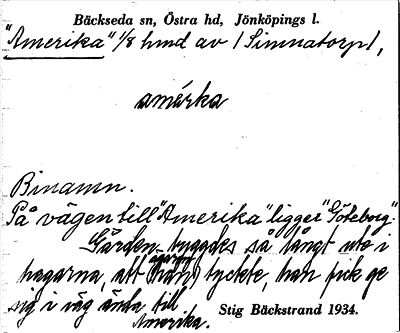 Bäckseda sn, Östra hd, Jönköpings l.
"Amerika" 1/8 hmd av /Simnatorp/,
amérka
Binamn.
På vägen till "Amerika" ligger "Göteborg".
Gården byggdes så långt ute i
hagarna, att man tyckte, han fick ge
sig i väg ända till
Amerika.
Stig Bäckstrand 1934.